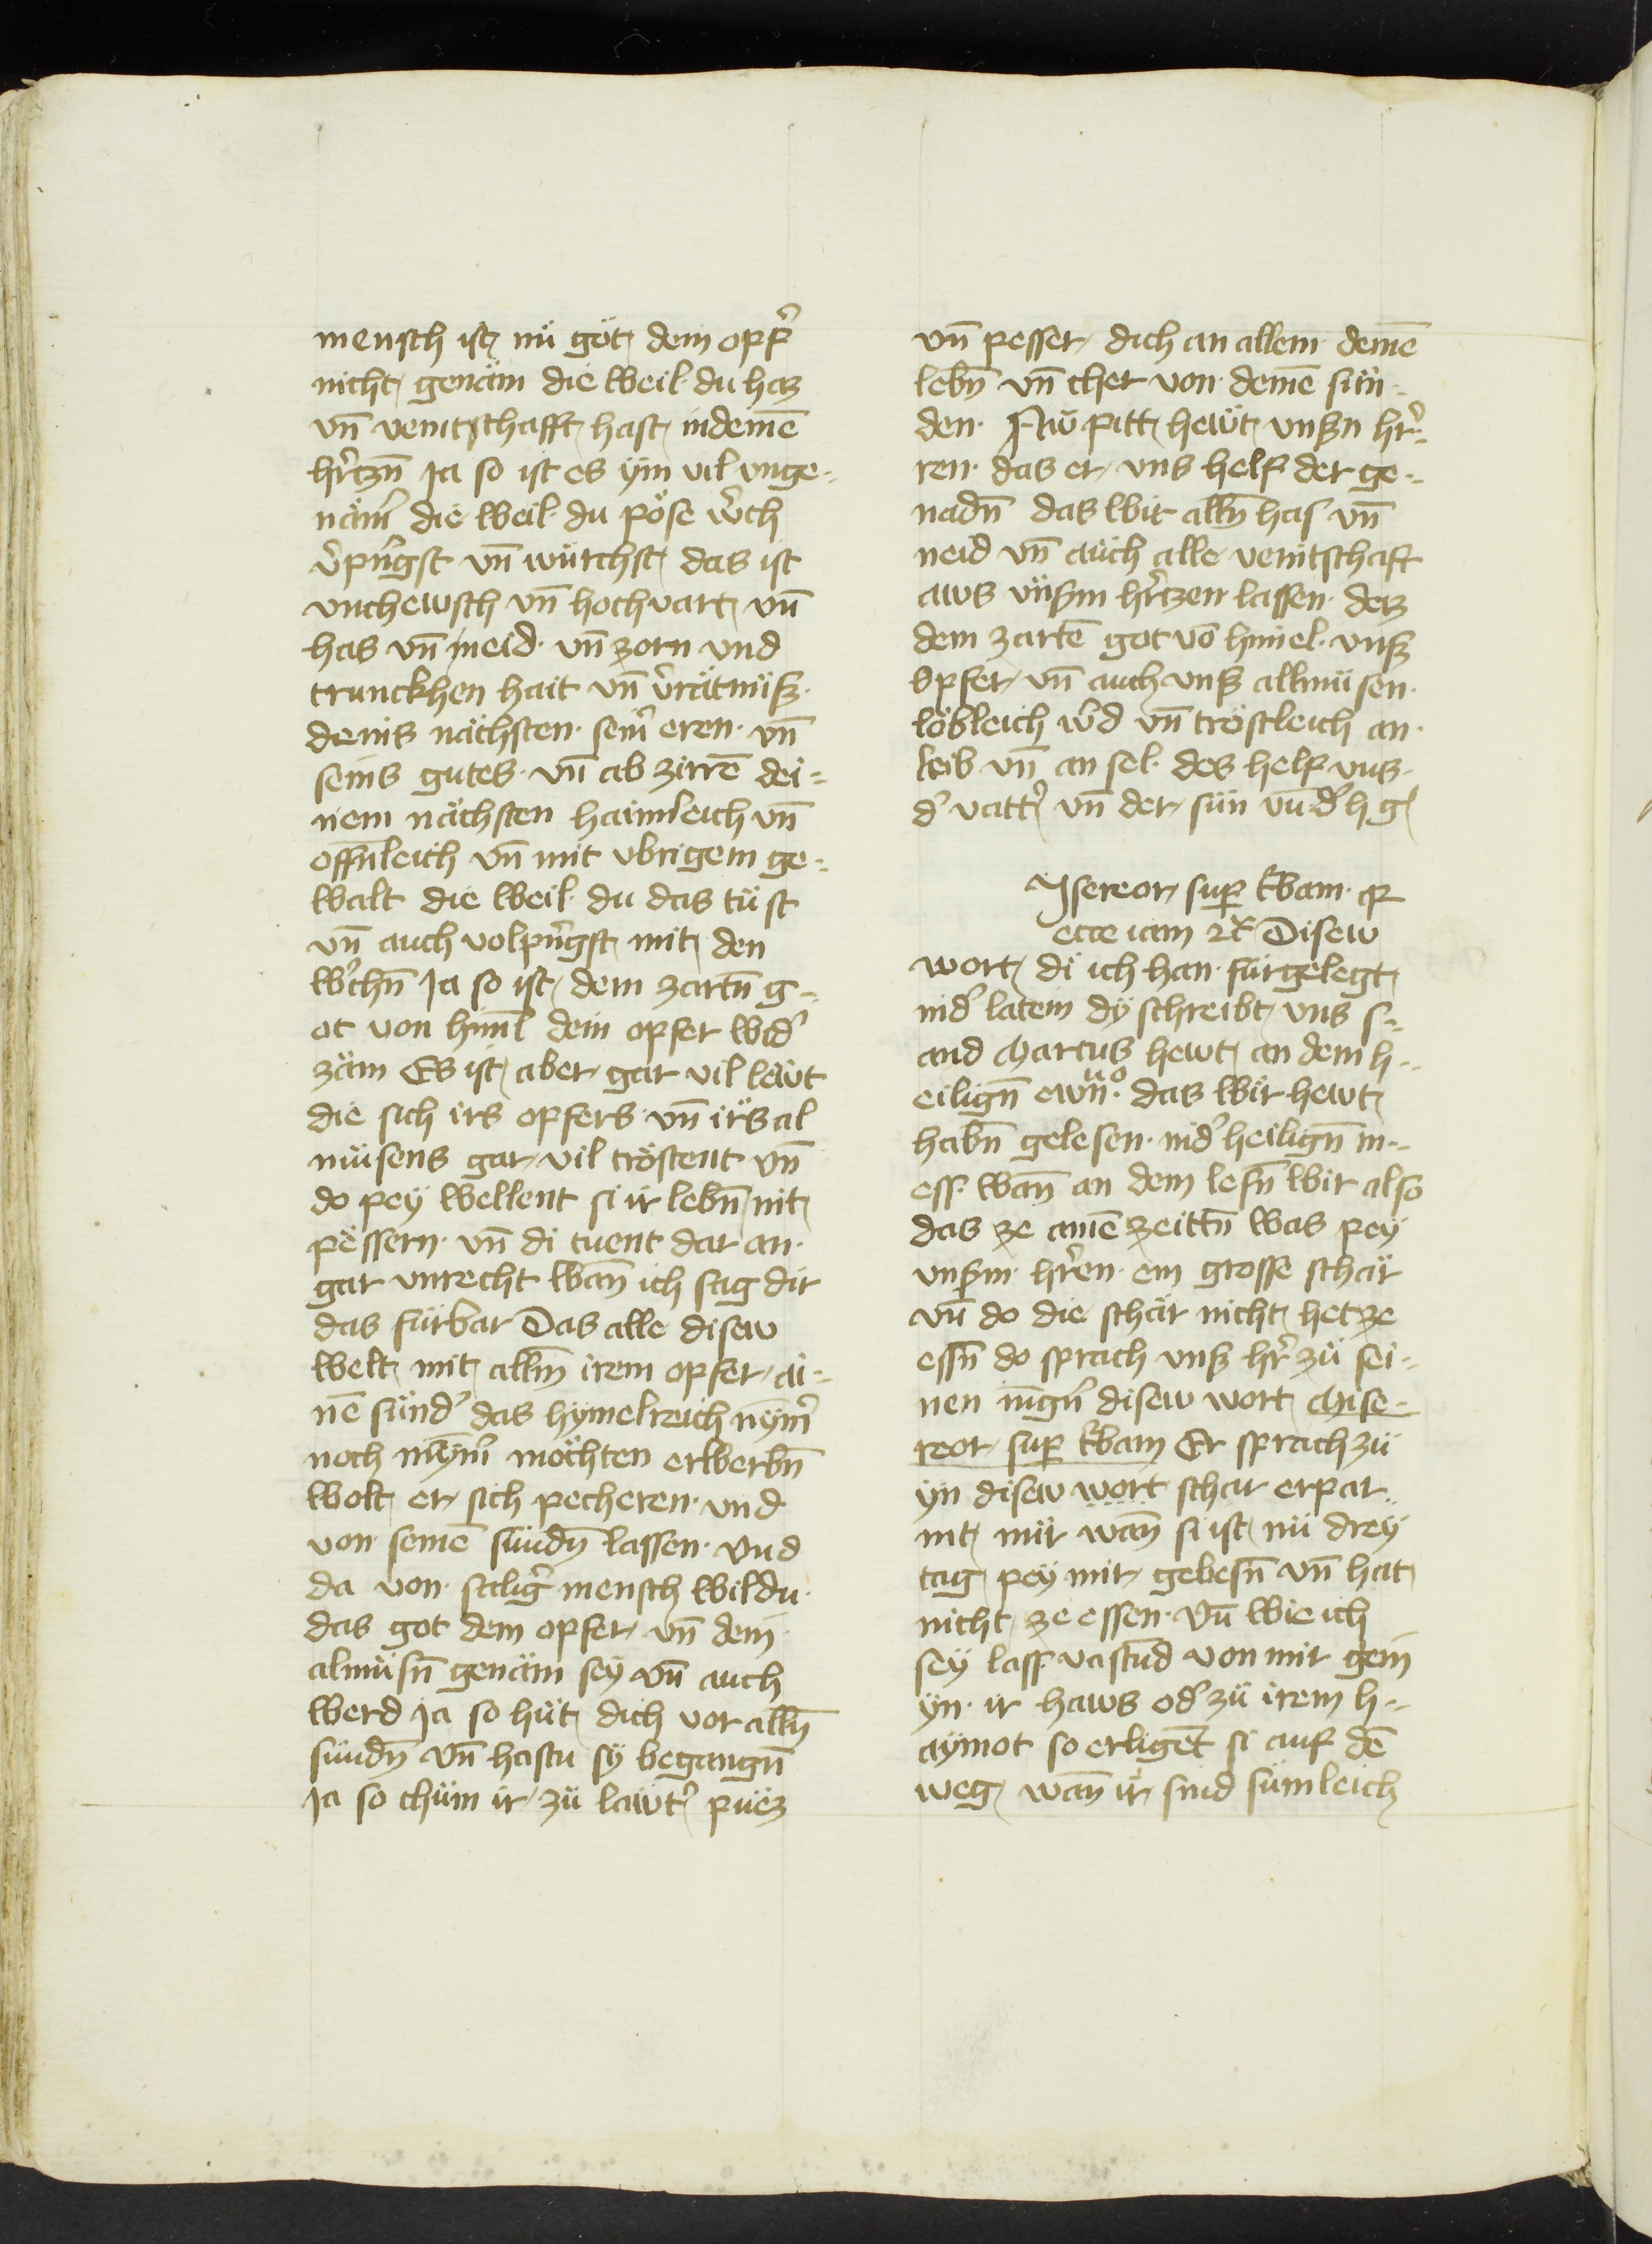 mensch ist nü göt dem opf̄er
nicht genäm die weil du haz
vn̄ veintschafft hast indeinē
hr̄tzn̄ Ja so ist es ym vil vnge=
näm̄ die weil du pöse w̄ch
v̄pn̄gst vn̄ würchst das ist
vnchewsch vn̄ hochvart vn̄
has vn̄ neid vn̄ zorn vnd
trunckhen hait vn̄ v̄rätnüß
deins nächsten sein̄ eren vn̄
seins gutes vn̄ ab zirrē dei=
nem nächsten haimleich vn̄
offn̄leich vn̄ mit vbrigem ge=
walt die weil du das tüst
vn̄ auch volpn̄gst mit den
w̄chn̄ Ja so ist dem zartn̄ g=
ot von himl dein opfer wid̄
zäm Es ist aber gar vil lewt
die sich irs opfers vn̄ irs al
müsens gar vil tröstent vn̄
do pey wellent si ir lebn̄ nit
pessern vn̄ di tuent dar an
gar vnrecht wan̄ ich sag dir
das fürbar Das alle disew
welt mit alln̄ irem opfer ai=
nē sünd̄ das hymelreich nym̄
noch nym̄ möchten erwerbn̄
wolt er sich pecheren vnd
von seinē sündn̄ lassen vnd
da von saliḡ mensch wildu
das got dem opfer vn̄ dem
almüsn̄ genäm sey vn̄ auch
werd Ja so hüt dich vor alln̄
sündn̄ vn̄ hastu sy begangn̄
Ja so chüm ir zü lawt̄ puez
vn̄ pesser dich an allem deinē
lebn̄ vn̄ cher von deinē sün=
den Nw pitt hewt vnßn hr̄=
ren das er vns helf der ge=
nadn̄ das wir alln̄ has vn̄
neid vn̄ auch alle veintschaft
aws vnßm hr̄tzen lassen daz
dem zartē got vō himel vnß
opfer vn̄ auch vnß allmüsen
löbleich w̄d vn̄ tröstleich an
leib vn̄ an sel des helf vns
d̄ vatt̄ vn̄ der sün vn̄ d̄ h g
Isereor sup̄ t̄bam q̄
ecce iam 2c̄ Disew
wort di ich han fürgelegt
in d̄ latein dy schreibt vns s=
and Marcus hewt an dem h=
eilign̄ ewn̄o das wir hewt
habn̄ gelesen in d̄ heilign̄ m=
ess wan̄ an dem lesn̄ wir also
das ze ainē zeittn̄ was pey
vnßm hr̄en ein grosse schar
vn̄ do die schar nicht het ze
essn̄ do sprach vnß hr̄ zü sei=
nen iūgn̄ disew wort Mise=
reor sup̄ t̄bam Er sprach zü
yn disew wort schar erpar=
mt mir wan̄ si ist nü drey
tag pey mir gebesn̄ vn̄ hat
nicht ze essen vn̄ wie ich
sey lass vastund von mir gein
yn ir haws od̄ zü irem h=
aymot so erligēt si auf dē
weg wan̄ ir sind sümleich